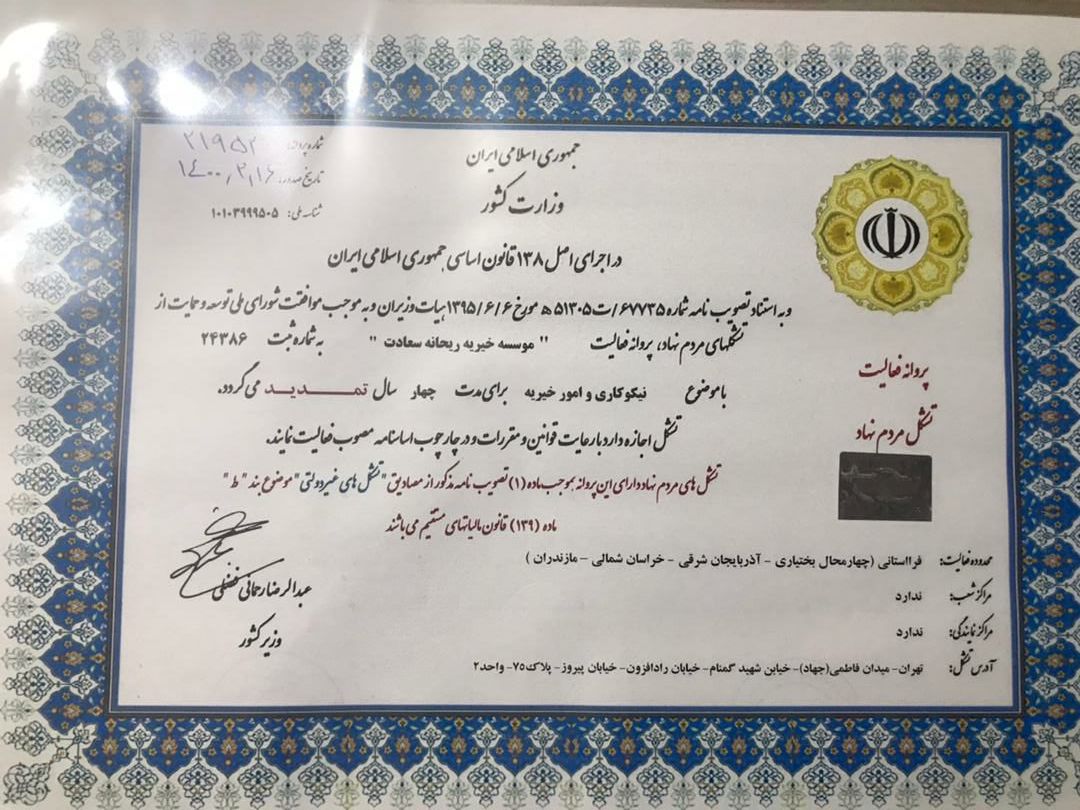 جمهوری اسلامی ایران
وزارت کشور
شماره پروانه: ۲۱۹۵۲
تاریخ صدور: ۱۴۰۰,۲,۱۶
شناسه ملی: ۱۰۱۰۳۹۹۹۵۰۵
در اجرای اصل ۱۳۸ قانون اساسی جمهوری اسلامی ایران
و به استناد تصویب نامه شماره ۶۷۷۳۵/ت۵۱۳۰۵ ه مورخ ۱۳۹۵/۶/۶ هیات وزیران و به موجب موافقت شورای ملی توسعه و حمایت از
تشکلهای مردم نهاد، پروانه فعالیت " موسسه خیریه ریحانه سعادت " به شماره ثبت ۲۴۳۸۶
با موضوع نیکوکاری و امور خیریه برای مدت چهار سال تمدید می گردد.
تشکل اجازه دارد با رعایت قوانین و مقررات و در چارچوب اساسنامه مصوب فعالیت نمایند.
تشکل های مردم نهاد دارای این پروانه بموجب ماده (۱) تصویب نامه مذکور از مصادیق "تشکل های غیردولتی" موضوع بند "ط"
ماده (۱۳۹) قانون مالیاتهای مستقیم می باشند
پروانه فعالیت
تشکل مردم نهاد
محدوده فعالیت: فرااستانی (چهارمحال بختیاری - آذربایجان شرقی - خراسان شمالی - مازندران )
مراکز شعب: ندارد
مراکز نمایندگی: ندارد
آدرس تشکل: تهران- میدان فاطمی(جهاد)- خیابن شهید گمنام- خیابان رادافزون- خیابان پیروز- پلاک۷۵- واحد۲
عبدالرضا رحمانی فضلی
وزیر کشور